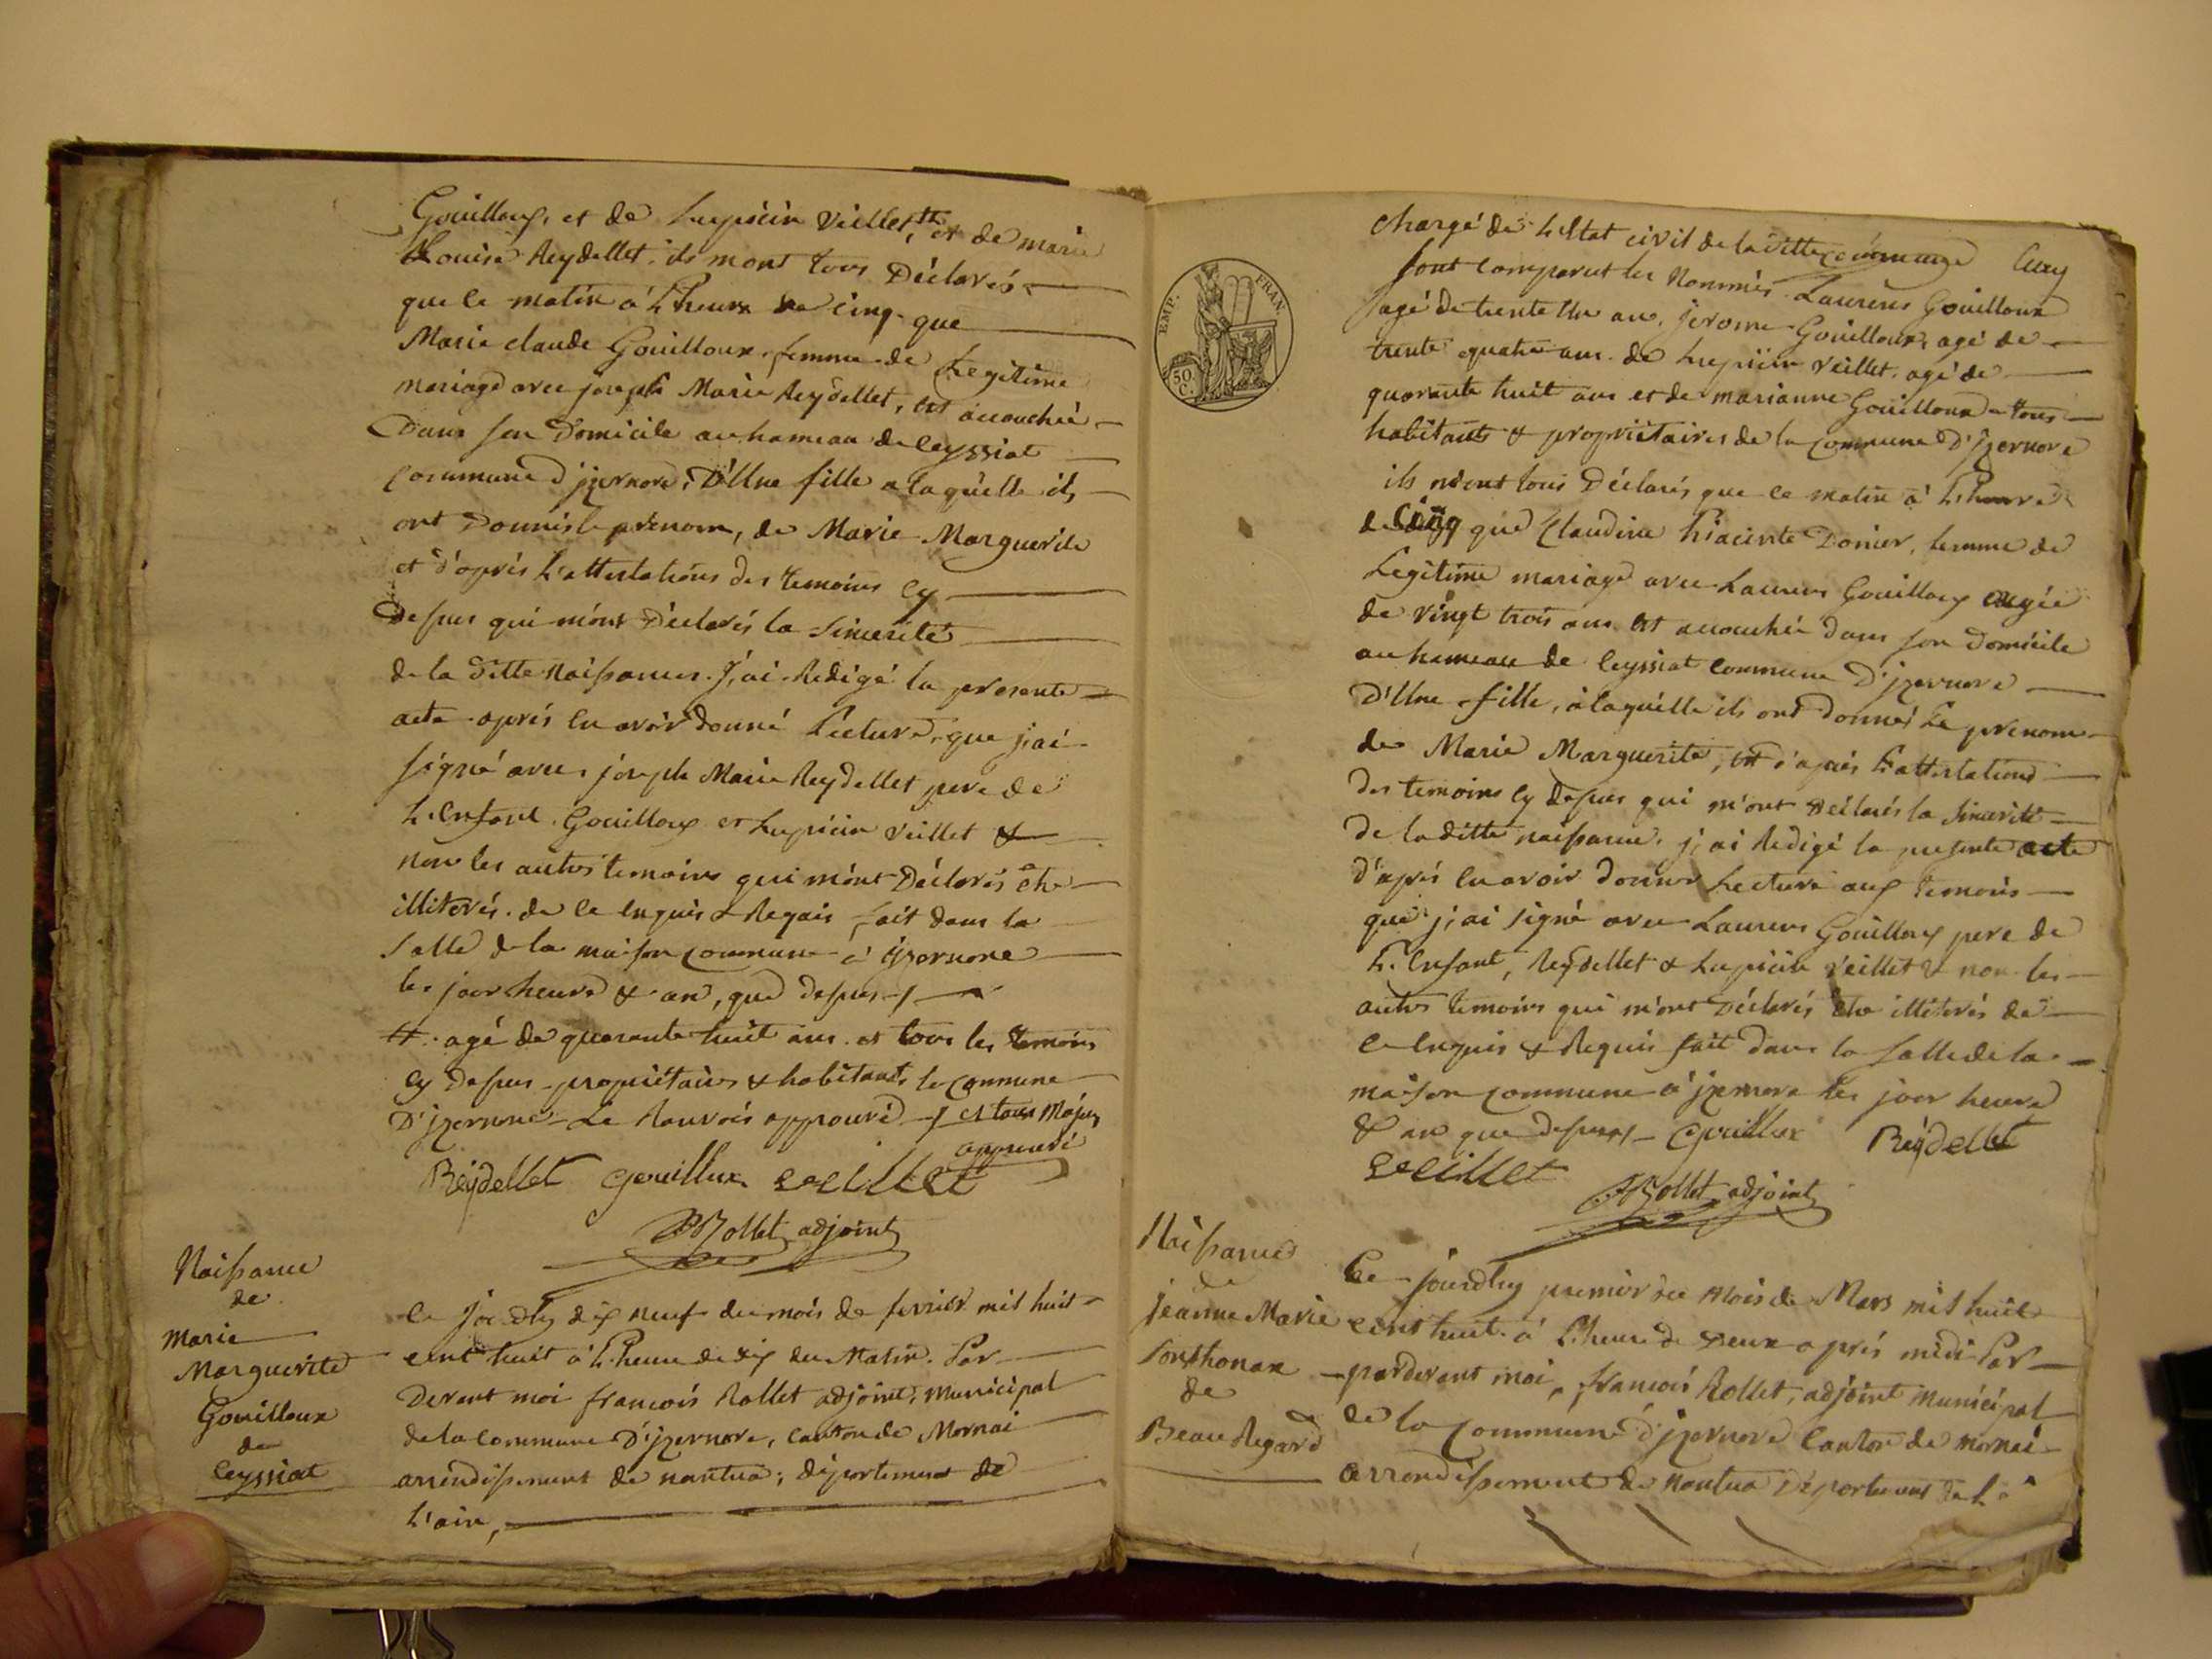 Gouilloux, et de Lupicin Veillet, # et de marie
Louise Reydellet. ils mont tous Déclarés
que le matin à L'heure de cinq que
Marie claude Gouilloux femme de Legitime
mariage avec joseph Marie Reydellet, est accouchée
Dans son Domicile au hameau de leyssiat
commune d'jzernore, D'Une fille a laquelle ils
ont Donnés le prénom, de Marie Marguerite
et d'aprés L'attestations des temoins cy
dessus qui m'ont Déclarés la Sincerité
de la ditte Naissances. J'ai Redigé la presente
acte aprés en avoir donné Lecture, que j'ai
signé avec joseph Marie Reydellet pere de
L'Enfant. Gouilloux et Lupicin Veillet &
non les autres temoins qui m'ont Déclarés être
illiterés. de ce enquis & Requis fait dans la
Salle de la maison commune à jzernore
les jour heure & an, que dessus
#. agé de quarante huit ans. et tous les temoins
cy dessus propriétaires & habitants la commune
D'jzernore Le Renvois approuvé et tous Majeurs
approuvé
Reÿdellet Gouillux Veillet
Rollet adjoint
Naissance
de
Marie
Marguerite
Gouilloux
de
leyssiat
Ce jourd'huy dix neuf du mois de fevrier mil huit
cent huit à L'heure de dix du Matin. Par
Devant moi françois Rollet adjoint, Municipal
de la commune D'jzernore, canton de Mornai
arrondissement de nantua; département de
L'ain,
chargé de L'Etat civil de la ditte commune
sont comparut les Nommés Laurens Gouilloux
agé de trente Un ans, jerome Gouilloux, agé de
trente quatre ans. de Lupicin Veillet. agé de
quarante huit ans et de marianne Gouilloux tous
habitants & propriétaires de la commune D'jzernore
ils m'ont tous Déclarés que ce matin à L'heure
de Cinq que Claudine hiacinte Donier, femme de
Legitime mariage avec Laurens Gouilloux agée
de vingt trois ans est accouchée dans son domicile
au hameau de leyssiat commune D'jzernore
D'Une fille, à laquelle ils ont donnés Le prenom
de Marie Marguerite, et d'aprés L'attestations
des temoins cy dessus qui m'ont déclarés la Sincerité
de la ditte naissance. j'ai Redigé la presente acte
d'aprés en avoir donner Lecture aux temoins
que j'ai signé avec Laurens Gouilloux pere de
L'Enfant, Reydellet & Lupicin Veillet & non les
autres temoins qui m'ont Déclarés être illiterés de
ce Enquis & Requis fait dans la salle de la
maison commune à jzernore les jour heure
& an que dessus Gouillux Reÿdellet
Veillet
Rollet adjoint
EMP. FRAN.
50 C.
Naissance
de
jeanne Marie
Sonthonax
de
Beau Regard
Ce jourdhuy premier du Mois de Mars mil huit
cent huit à L'heure de deux aprés midi Par
pardevant moi, françois Rollet, adjoint Municipal
de la commune d'jzernore Canton de mornai
arrondissement de Nantua Département de L'